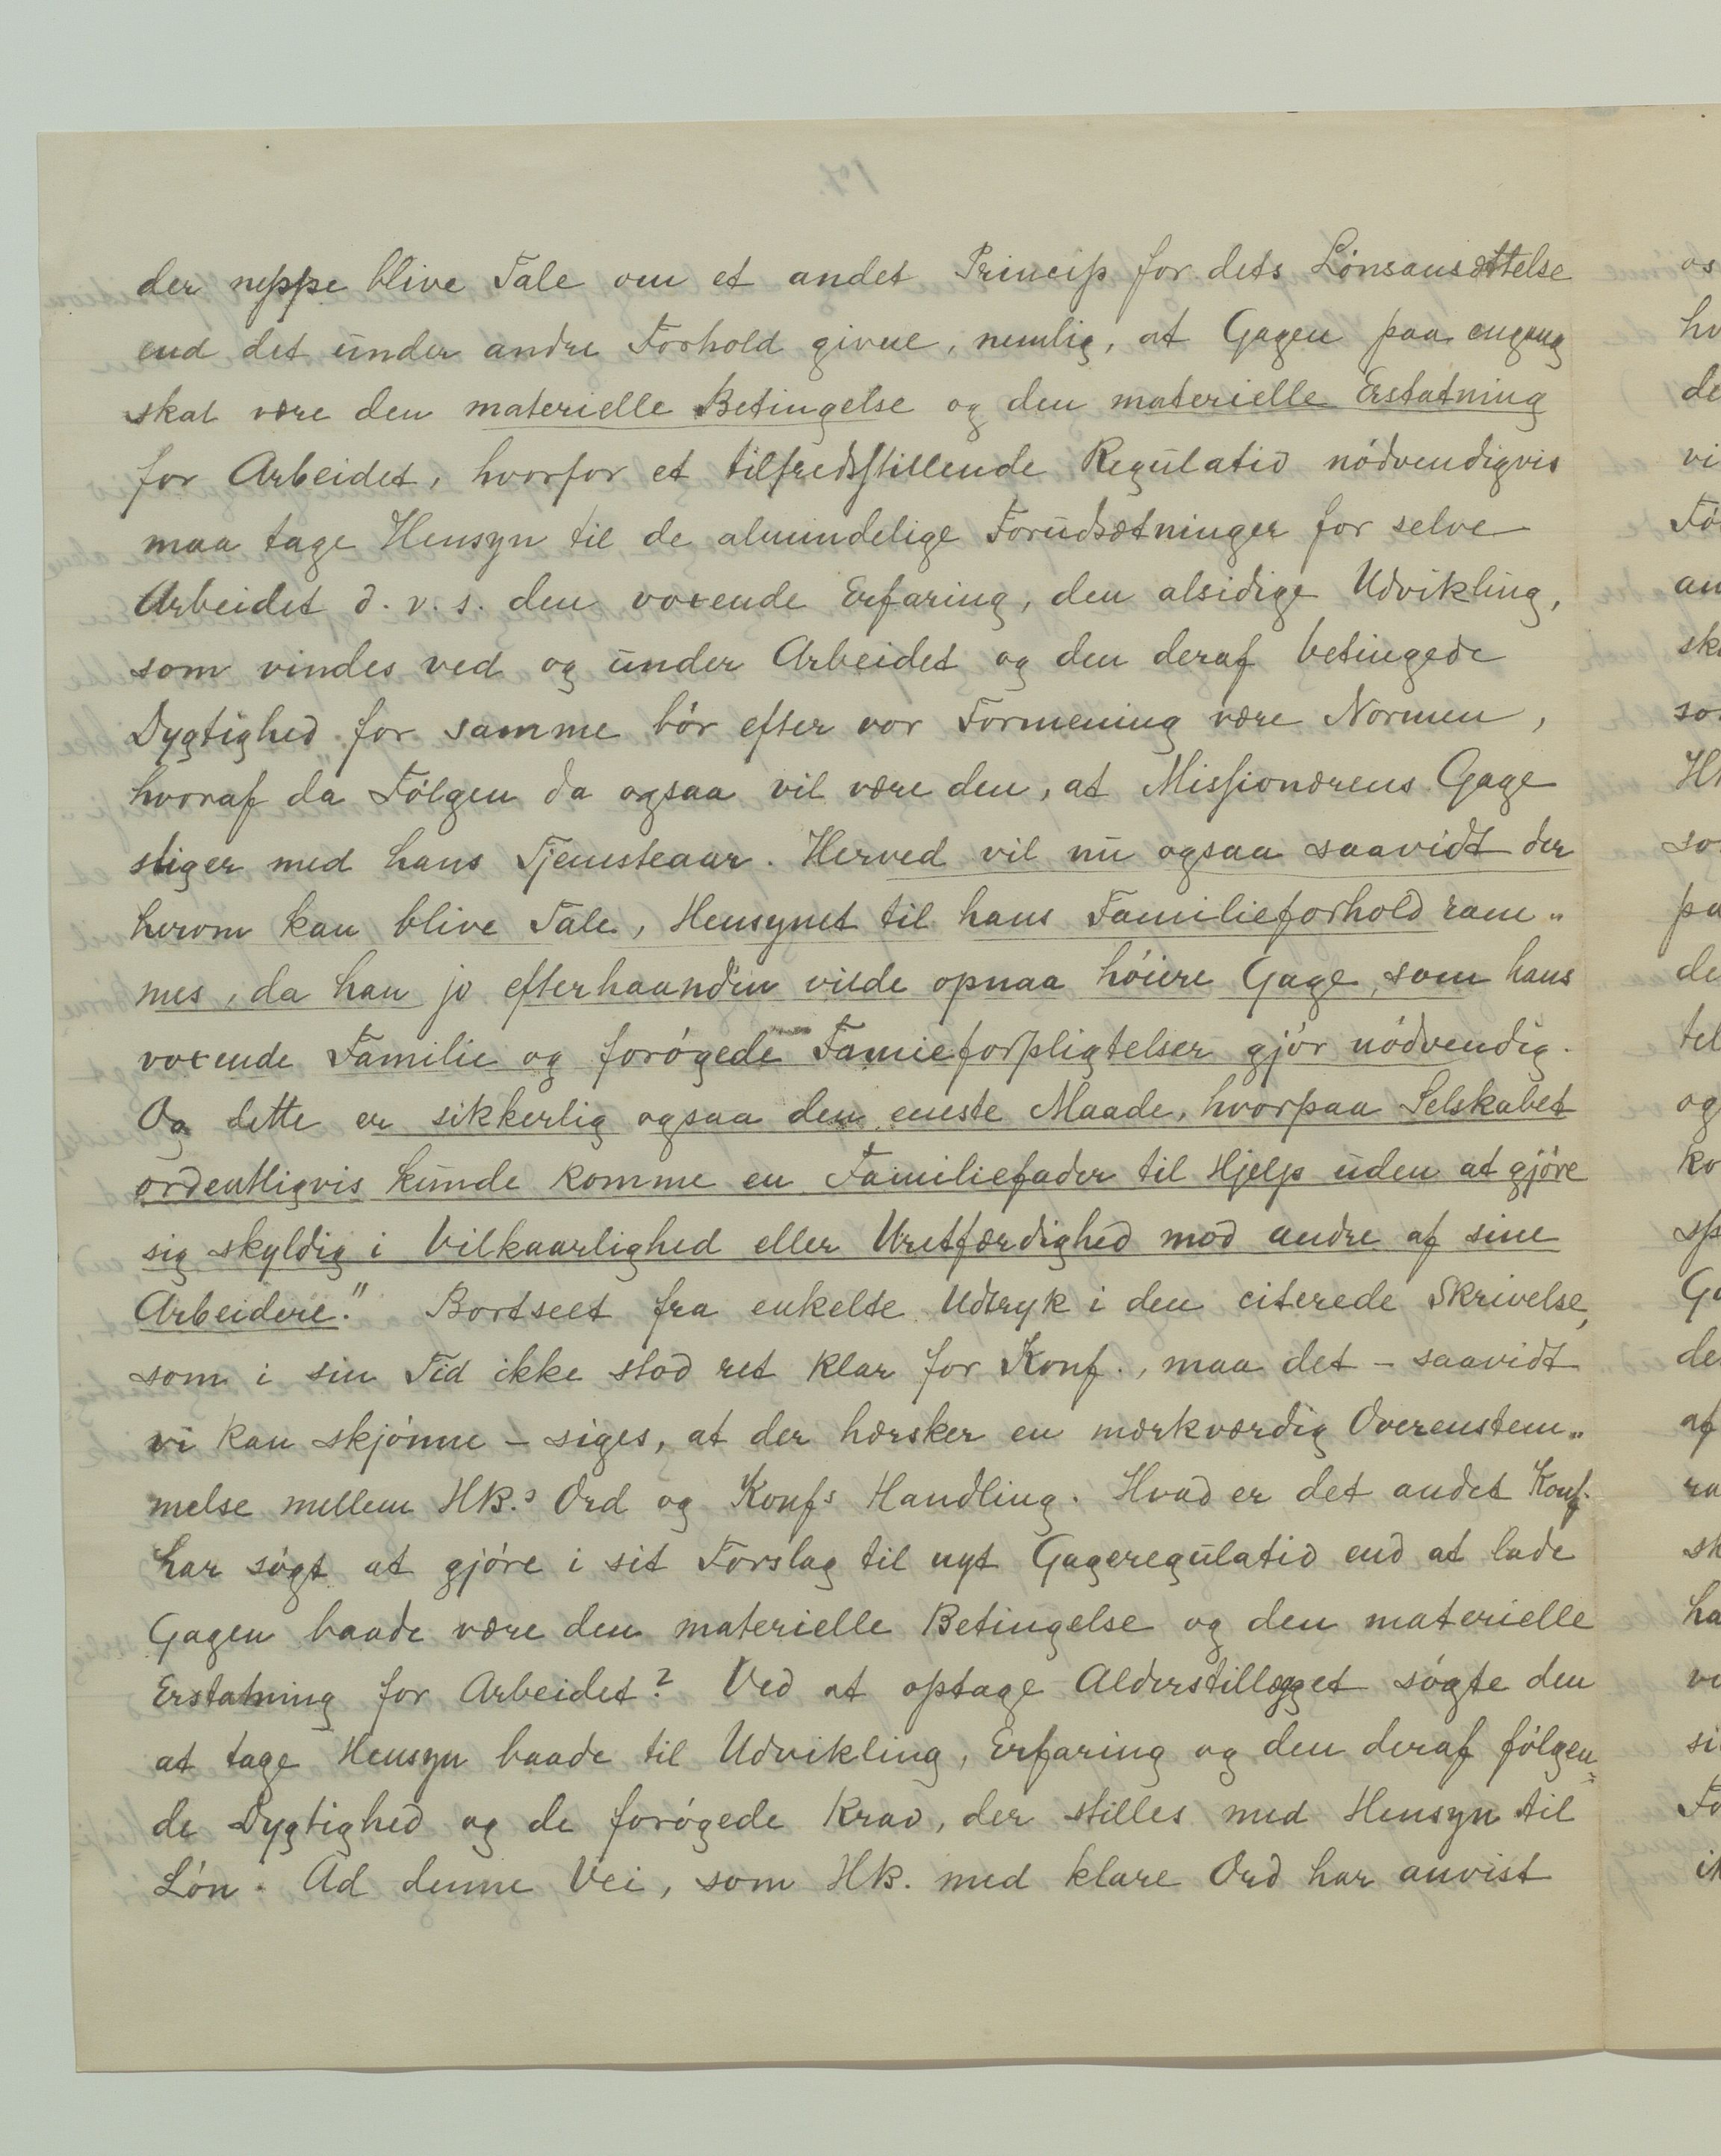 der neppe blive Tale om et andet Princip for dets Lönsansættelse
end det under andre Forhold givne, nemlig, at Gagen paa engang
skal være den materielle Betingelse og den materielle Erstatning
for Arbeidet, hvorfor et tilfredsstillende Regulativ nödvendigvis
maa tage Hensyn til de almindelige Forudsætninger for selve
Arbeidet d. v. s. den voxende Erfaring, den alsidige Udvikling,
som vindes ved og under Arbeidet og den deraf betingede
Dygtighed for samme bör efter vor Formening være Normen,
hvoraf da Fölgen da ogsaa vil være den, at Missionærens Gage
stiger med hans Tjensteaar. Herved vil nu ogsaa saavidt der
herom kan blive Tale, Hensynet til hans Familieforhold ram„
mes, da han jo efterhaanden vilde opnaa höiere Gage, som hans
voxende Familie og forögede Famieforpligtelser gjör nödvendig.
Og dette er sikkerlig ogsaa den eneste Maade, hvorpaa Selskabet
ordentligvis kunde komme en Familiefader til Hjelp uden at gjöre
sig skyldig i Vilkaarlighed eller Uretfærdighed mod andre af sine
Arbeidere." Bortseet fra enkelte Udtryk i den citerede Skrivelse,
som i sin Tid ikke stod ret klar for Konf., maa det – saavidt
vi kan skjönne – siges, at der hærsker en mærkværdig Overenstem„
melse mellem HB.s Ord og Konfs Handling. Hvad er det andet Konf.
har sögt at gjöre i sit Forslag til nyt Gageregulativ end at lade
Gagen baade være den materielle Betingelse og den materielle
Erstatning for Arbeidet? Ved at optage Alderstillægget sögte den
at tage Hensyn baade til Udvikling, Erfaring og den deraf fölgen=
de Dygtighed og de forögede Krav, der stilles med Hensyn til
Lön. Ad denne Vei, som HB. med klare Ord har anvist